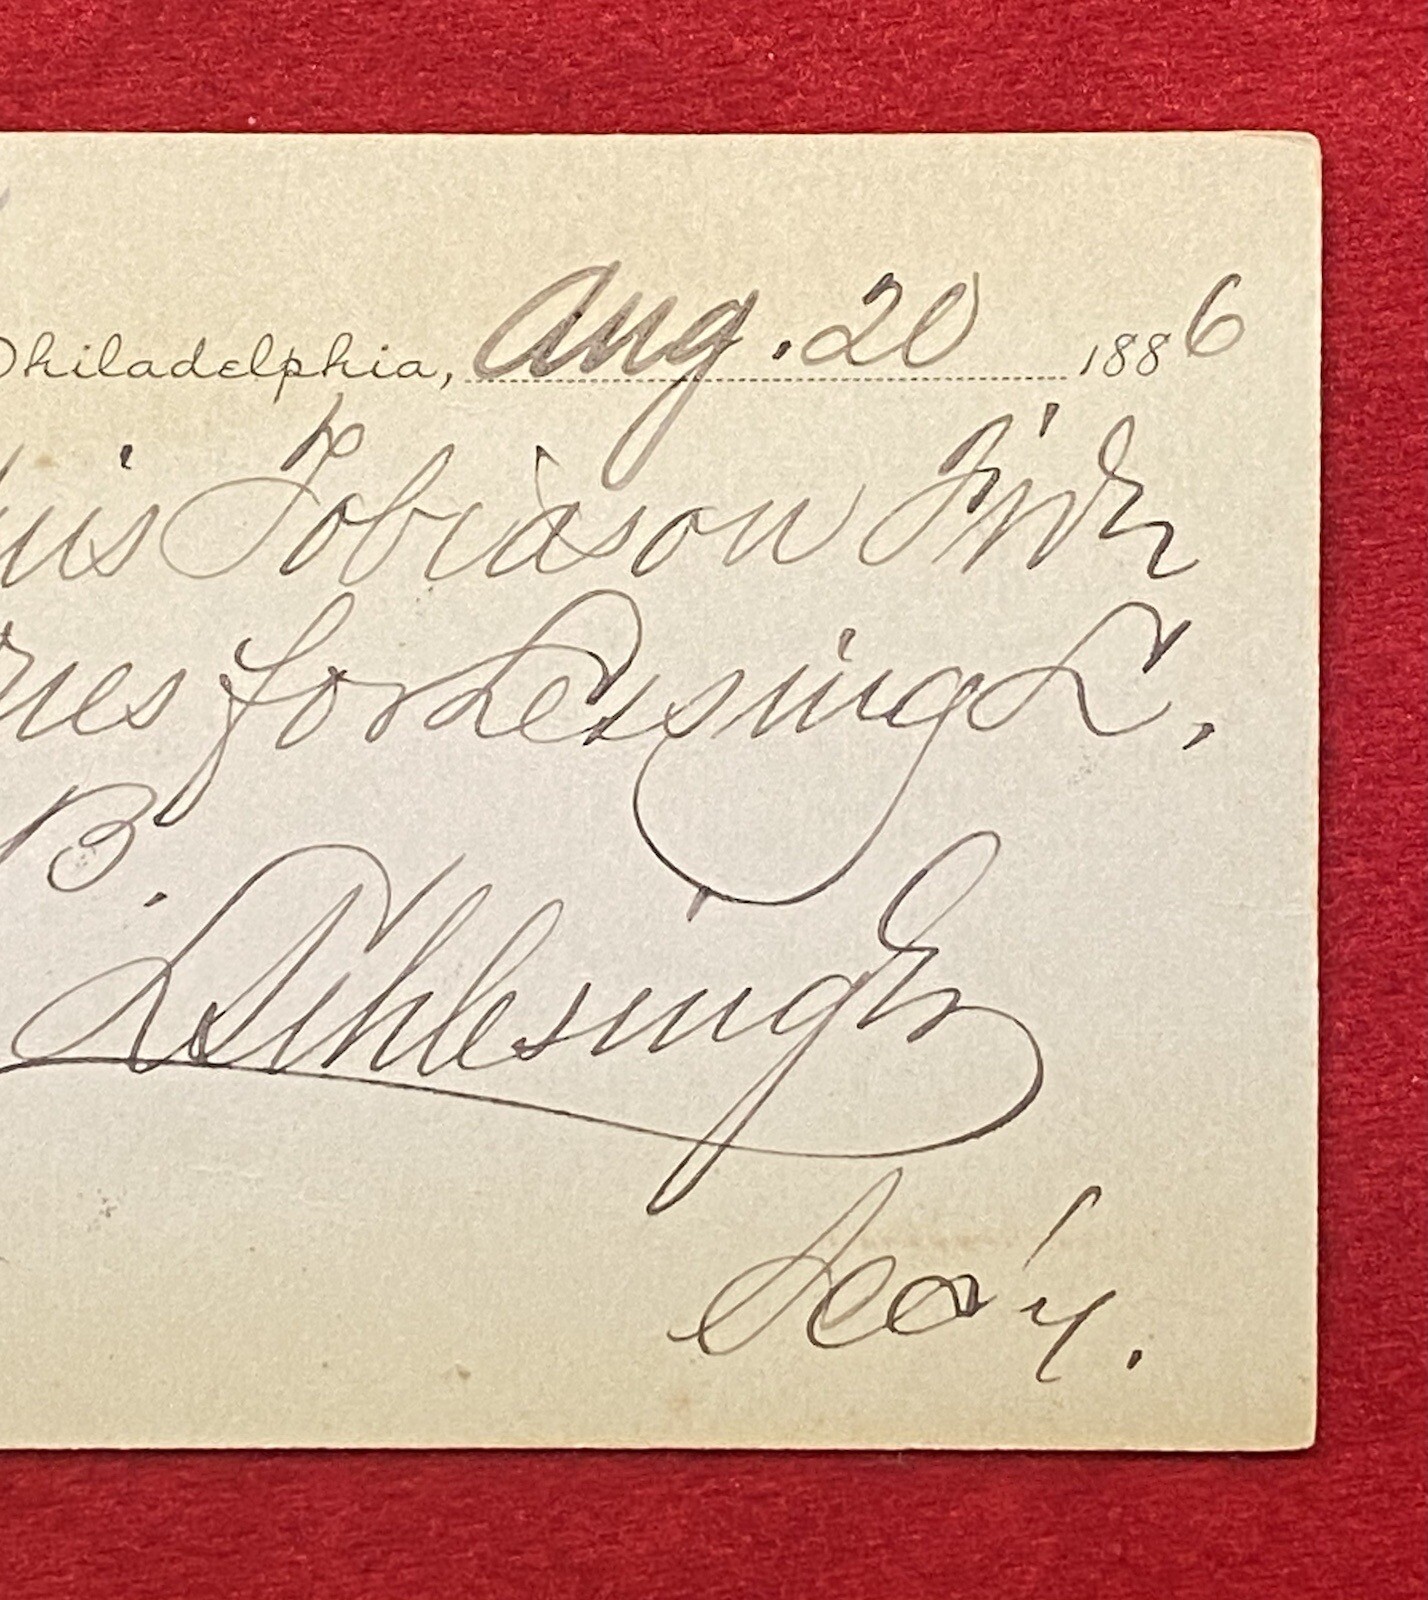 Philadelphia, Aug. 20 1886
Tobiason
for Lessing L.
B.
L. Schlesinger
Sec'y.